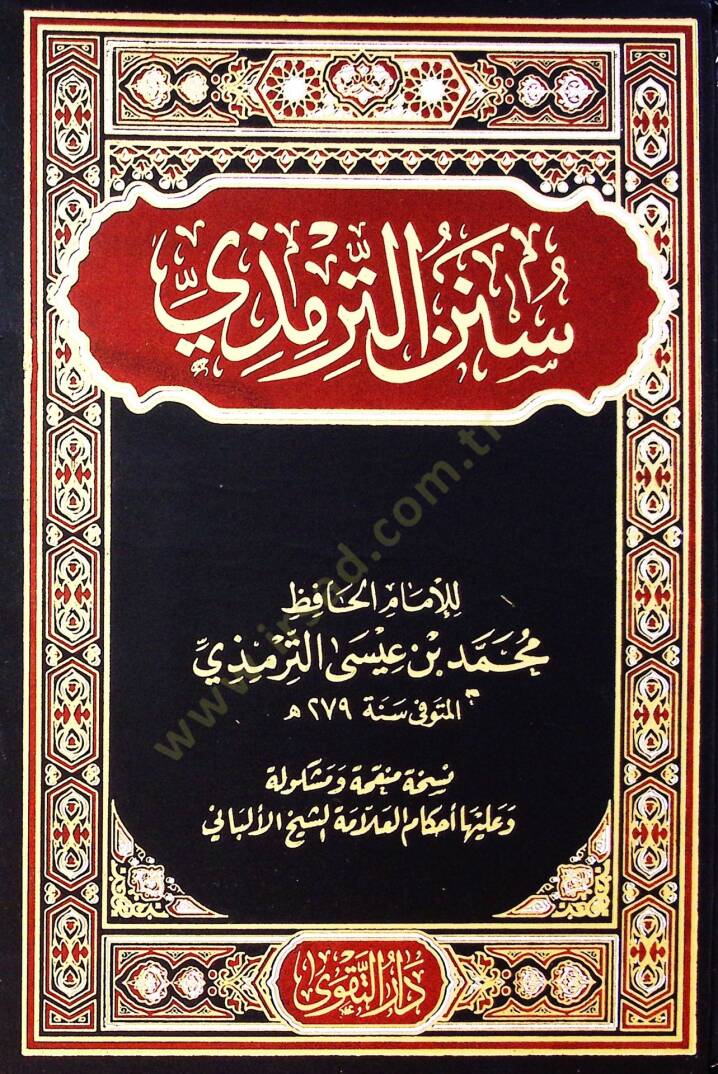 سُنَنُ التِّرْمِذِيِّ
للإمَامِ الحَافِظِ
مُحَمَّد بْن عِيْسَى التِّرْمِذِيِّ
المتوفى سَنَة ٢٧٩ ه
نسخة منقحة ومشكولة
وَعليْهَا أحكام العَلّامَة الشيخ الألباني
دَارُ التَّقْوَى
www.irsad.com.tr